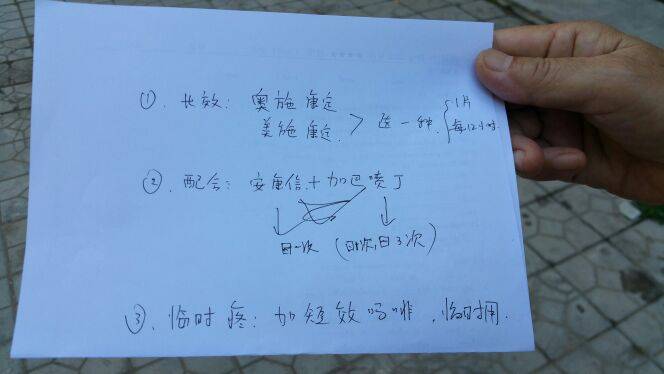 ①. 长效: 奥施康定
美施康定 > 选一种 { 1片 每12小时
②. 配合: 安康信 + 加巴喷丁
日一次 (日1次, 日3次)
③. 临时疼: 加短效吗啡, 临时用.